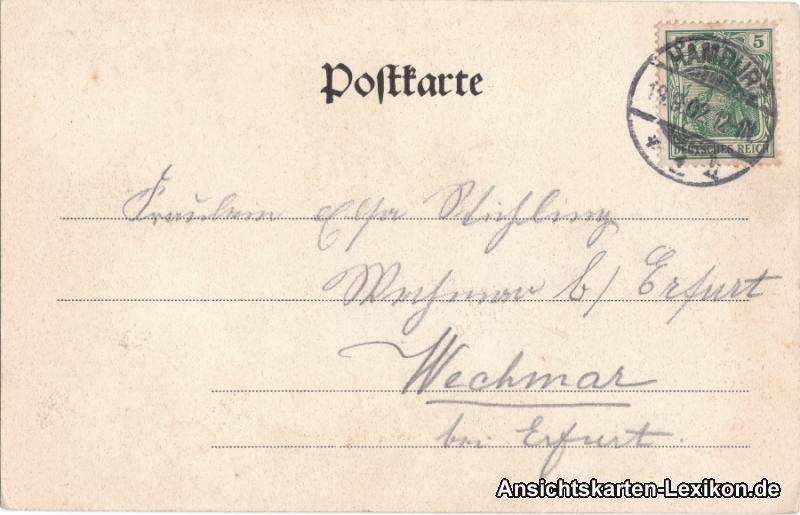 Postkarte
5
HAMBURG
19. 02. 12-1N.
* 1 k
DEUTSCHES REICH
Fräulein Elsa Stichling
Wechmar b/ Erfurt
Wechmar
bei Erfurt.
Ansichtskarten-Lexikon.de